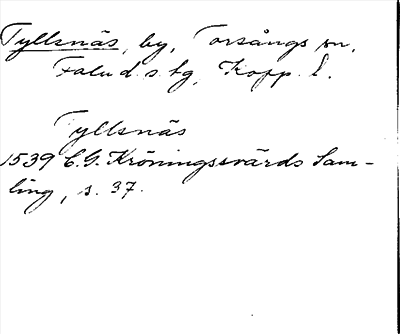 Tyllsnäs, by, Torsångs sn,
Falu d. s. tg, Kopp. l.
Tyllsnäs
1539 C.G. Kröningssvärds Sam-
ling, s. 37.